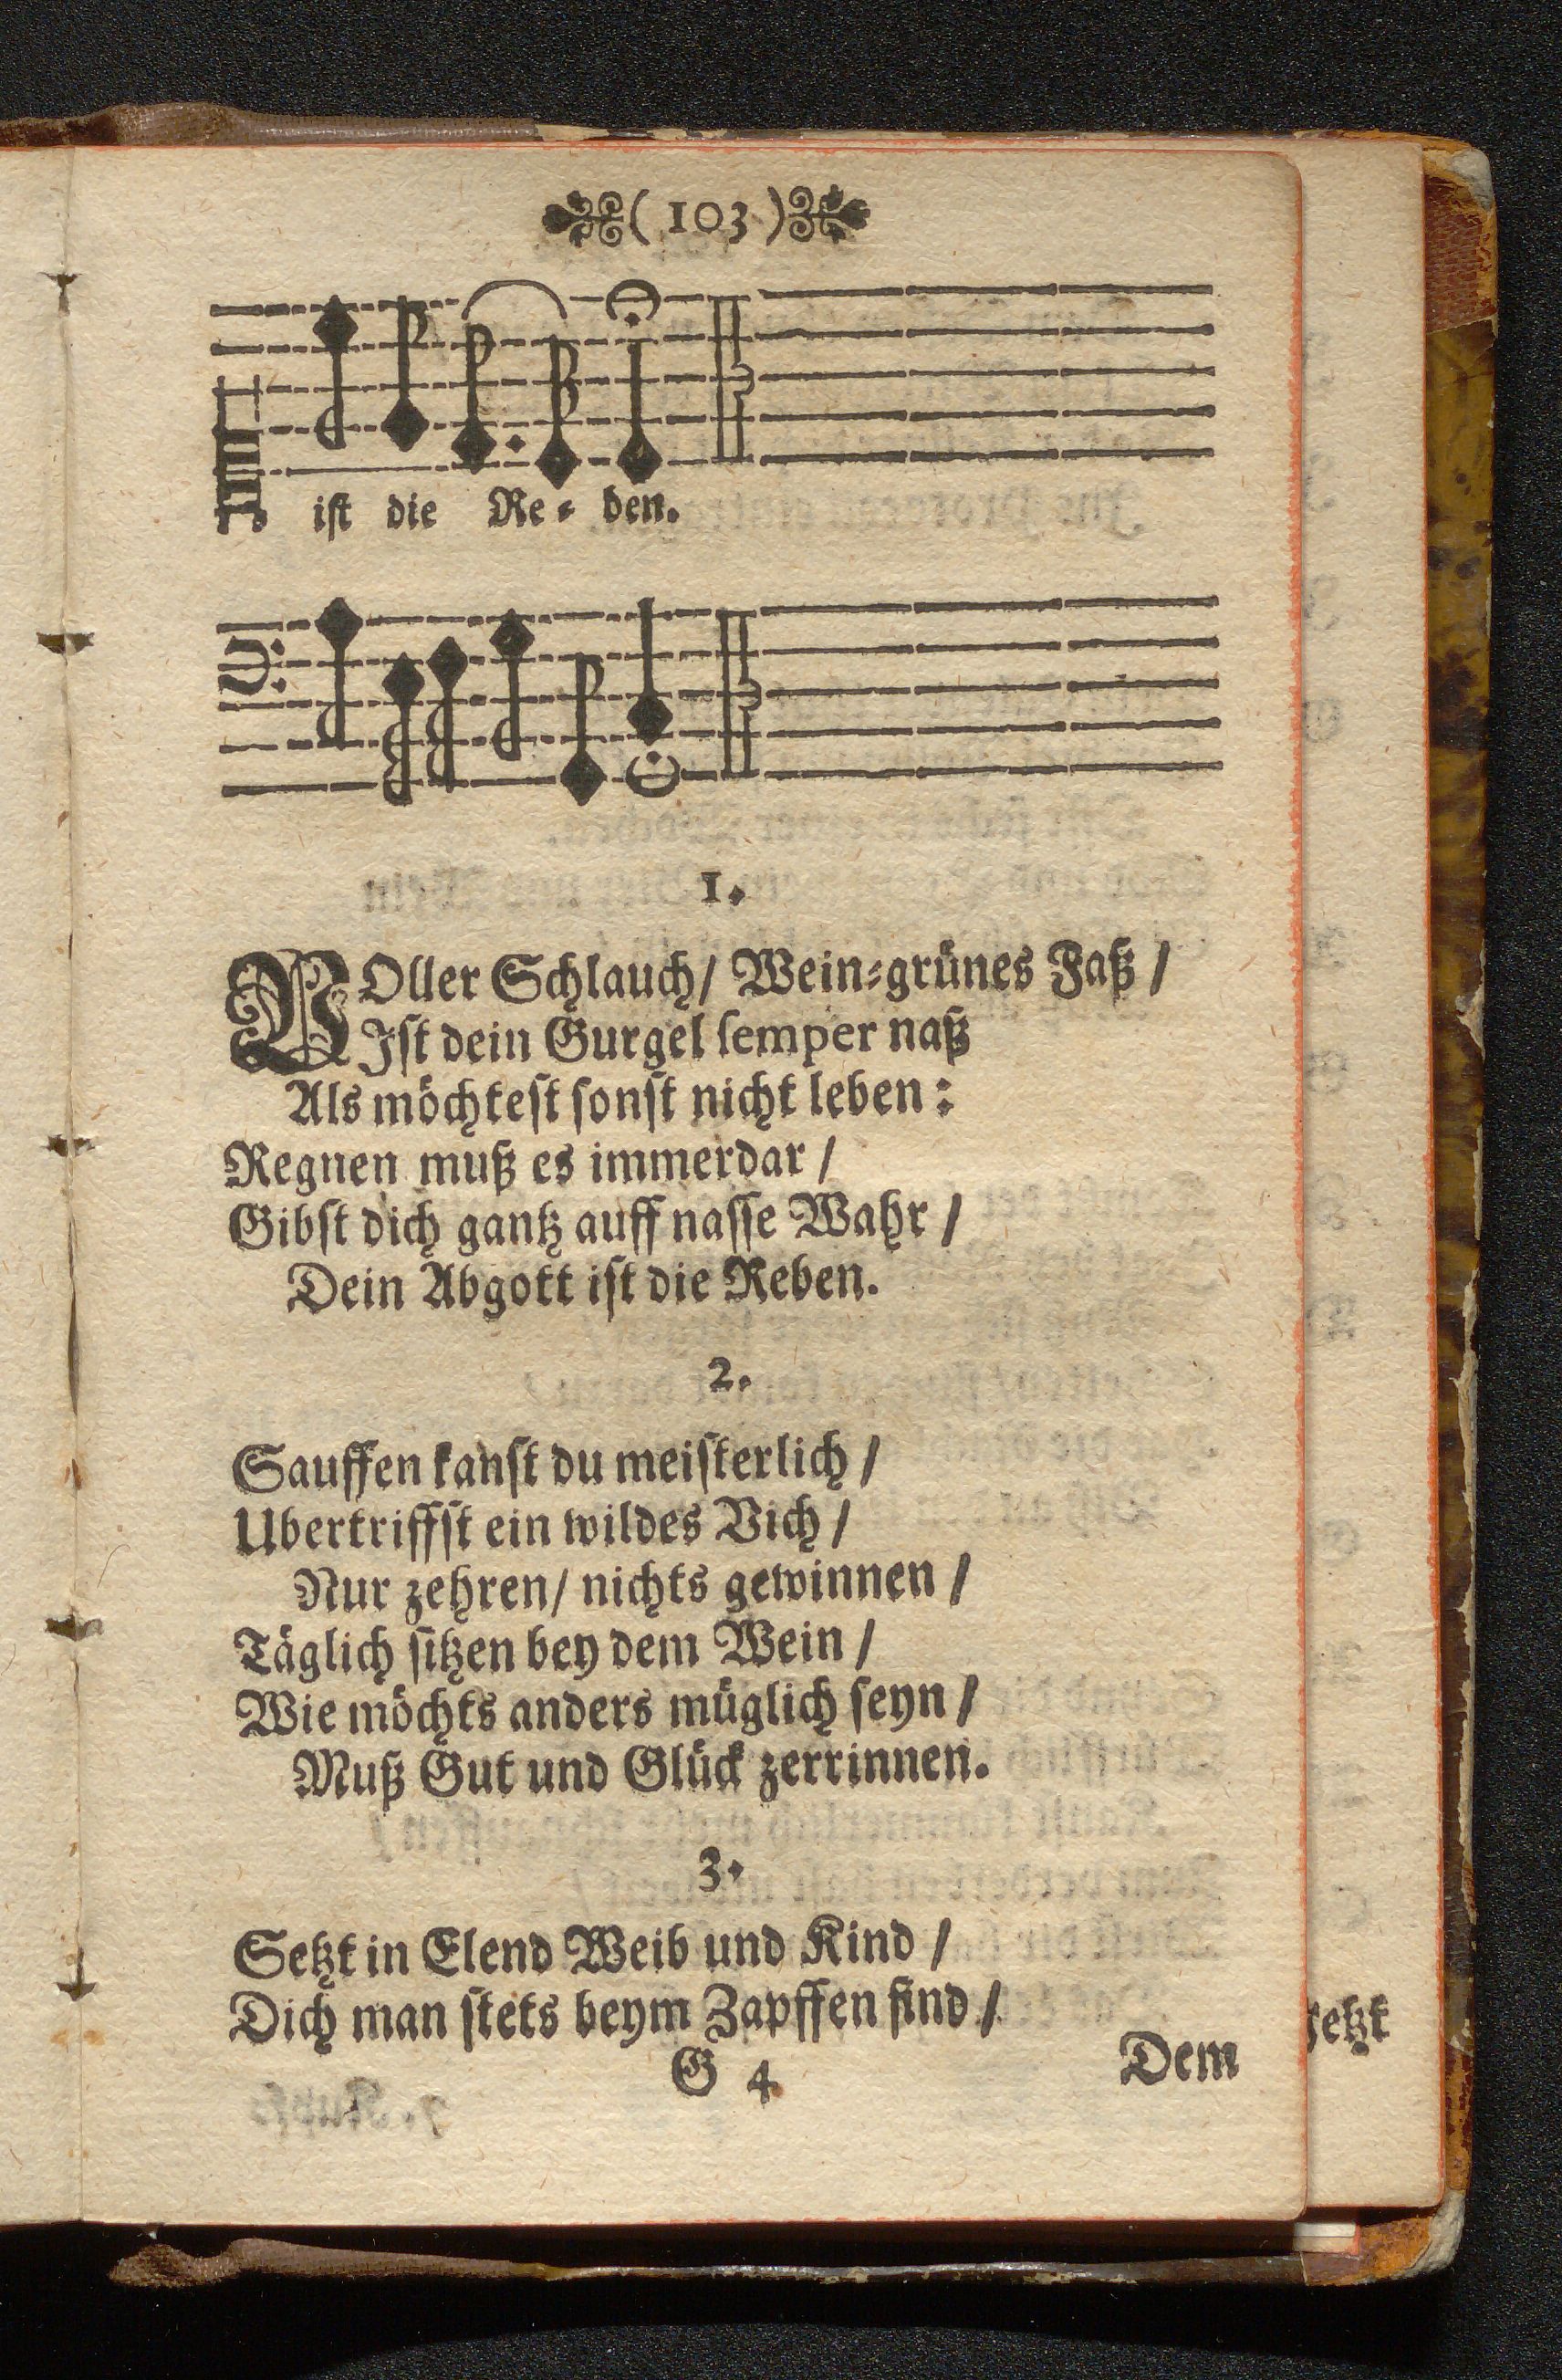 ( 103 )
ist die Re⸗ den.
1.
VOller Schlauch/ Wein⸗grünes Faß /
Ist dein Gurgel semper naß
Als möchtest sonst nicht leben:
Regnen muß es immerdar /
Gibst dich gantz auff nasse Wahr /
Dein Abgott ist die Reben.
2.
Sauffen kanst du meisterlich /
Ubertriffst ein wildes Vich /
Nur zehren/ nichts gewinnen /
Täglich sitzen bey dem Wein /
Wie möchts anders müglich seyn /
Muß Gut und Glück zerrinnen.
3.
Setzt in Elend Weib und Kind /
Dich man stets beym Zapffen find /
G 4
Dem